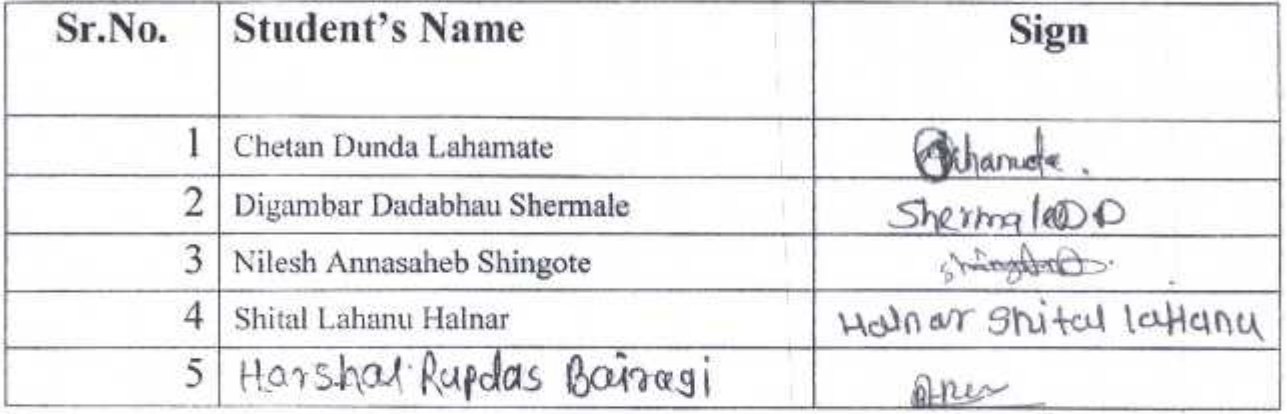 Sr.No. Student's Name Sign
1 Chetan Dunda Lahamate
2 Digambar Dadabhau Shermale ShermaleDD
3 Nilesh Annasaheb Shingote
4 Shital Lahanu Halnar Halnar Shital laHanu
5 Harshal Rupdas Bairagi